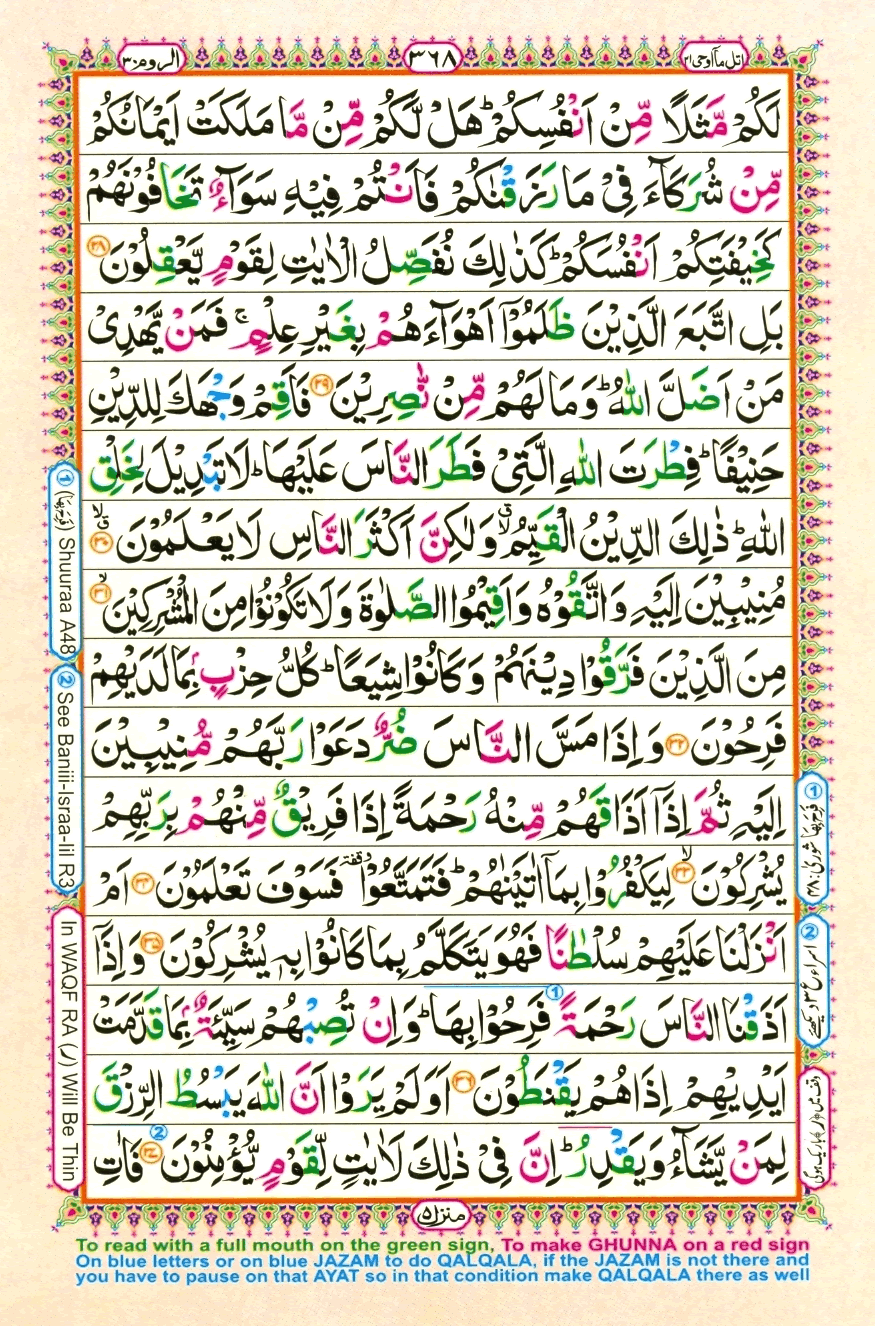 اتل مآ اوحی ۲۱
۳۶۸
الروم ۳۰
لَكُمْ مَّثَلًا مِّنْ اَنْفُسِكُمْ ؕ هَلْ لَّكُمْ مِّنْ مَّا مَلَكَتْ اَیْمَانُكُمْ
مِّنْ شُرَكَآءَ فِیْ مَا رَزَقْنٰكُمْ فَاَنْتُمْ فِیْهِ سَوَآءٌ تَخَافُوْنَهُمْ
كَخِیْفَتِكُمْ اَنْفُسَكُمْ ؕ كَذٰلِكَ نُفَصِّلُ الْاٰیٰتِ لِقَوْمٍ یَّعْقِلُوْنَ ﴿۲۸﴾
بَلِ اتَّبَعَ الَّذِیْنَ ظَلَمُوْۤا اَهْوَآءَهُمْ بِغَیْرِ عِلْمٍ ۚ فَمَنْ یَّهْدِیْ
مَنْ اَضَلَّ اللّٰهُ ؕ وَمَا لَهُمْ مِّنْ نّٰصِرِیْنَ ﴿۲۹﴾ فَاَقِمْ وَجْهَكَ لِلدِّیْنِ
حَنِیْفًا ؕ فِطْرَتَ اللّٰهِ الَّتِیْ فَطَرَ النَّاسَ عَلَیْهَا ؕ لَا تَبْدِیْلَ لِخَلْقِ
اللّٰهِ ؕ ذٰلِكَ الدِّیْنُ الْقَیِّمُ ۙق وَلٰكِنَّ اَكْثَرَ النَّاسِ لَا یَعْلَمُوْنَ ﴿۳۰﴾ ۙق
مُنِیْبِیْنَ اِلَیْهِ وَاتَّقُوْهُ وَاَقِیْمُوا الصَّلٰوةَ وَلَا تَكُوْنُوْا مِنَ الْمُشْرِكِیْنَ ﴿۳۱﴾ ۙ
مِنَ الَّذِیْنَ فَرَّقُوْا دِیْنَهُمْ وَكَانُوْا شِیَعًا ؕ كُلُّ حِزْبٍۭ بِمَا لَدَیْهِمْ
فَرِحُوْنَ ﴿۳۲﴾ وَاِذَا مَسَّ النَّاسَ ضُرٌّ دَعَوْا رَبَّهُمْ مُّنِیْبِیْنَ
اِلَیْهِ ثُمَّ اِذَاۤ اَذَاقَهُمْ مِّنْهُ رَحْمَةً اِذَا فَرِیْقٌ مِّنْهُمْ بِرَبِّهِمْ
یُشْرِكُوْنَ ﴿۳۳﴾ ۙ لِیَكْفُرُوْا بِمَاۤ اٰتَیْنٰهُمْ ؕ فَتَمَتَّعُوْا وقفة فَسَوْفَ تَعْلَمُوْنَ ﴿۳۴﴾ اَمْ
اَنْزَلْنَا عَلَیْهِمْ سُلْطٰنًا فَهُوَ یَتَكَلَّمُ بِمَا كَانُوْا بِهٖ یُشْرِكُوْنَ ﴿۳۵﴾ وَاِذَاۤ
اَذَقْنَا النَّاسَ رَحْمَةً فَرِحُوْا بِهَا ؕ وَاِنْ تُصِبْهُمْ سَیِّئَةٌۢ بِمَا قَدَّمَتْ
اَیْدِیْهِمْ اِذَا هُمْ یَقْنَطُوْنَ ﴿۳۶﴾ اَوَلَمْ یَرَوْا اَنَّ اللّٰهَ یَبْسُطُ الرِّزْقَ
لِمَنْ یَّشَآءُ وَیَقْدِرُ ؕ اِنَّ فِیْ ذٰلِكَ لَاٰیٰتٍ لِّقَوْمٍ یُّؤْمِنُوْنَ ﴿۳۷﴾ فَاٰتِ
منزل ۵
① (فرح بھا) Shuuraa A48
② See Baniii-Israa-Iil R3
In WAQF RA (ر) Will Be Thin
① فرح بھا شوریٰ ۴۸
② اسراء ع ۳ دیکھئے
وقف میں (ر) باریک ہوگی
To read with a full mouth on the green sign, To make GHUNNA on a red sign
On blue letters or on blue JAZAM to do QALQALA, if the JAZAM is not there and
you have to pause on that AYAT so in that condition make QALQALA there as well